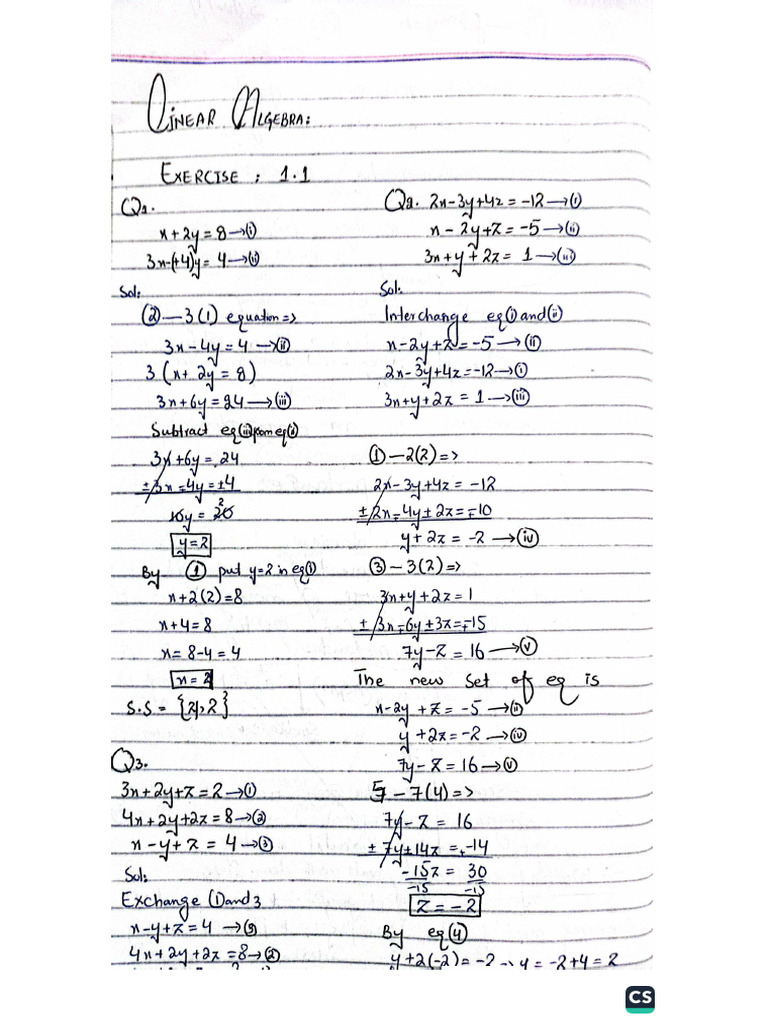 LINEAR ALGEBRA:
EXERCISE : 1.1
Q1.
x + 2y = 8 → (i)
3x-(+4)y = 4 → (ii)
Sol:
② — 3(1) equation =>
3x - 4y = 4 → (ii)
3 (x + 2y = 8)
3x + 6y = 24 → (iii)
Subtract eq(iii) from eq(ii)
3x + 6y = 24
± 3x - 4y = ± 4
10y = 20 2
y = 2
By ① put y=2 in eq(i)
x + 2(2) = 8
x + 4 = 8
x = 8 - 4 = 4
x = 2
S.S = { , 2}
Q3.
3x + 2y + z = 2 → (1)
4x + 2y + 2z = 8 → (2)
x - y + z = 4 → (3)
Sol:
Exchange (1) and 3
x - y + z = 4 → (3)
4x + 2y + 2z = 8 → (2)
Q2. 2x - 3y + 4z = -12 → (i)
x - 2y + z = -5 → (ii)
3x + y + 2z = 1 → (iii)
Sol:
Interchange eq(i) and (ii)
x - 2y + z = -5 → (ii)
2x - 3y + 4z = -12 → (i)
3x + y + 2z = 1 → (iii)
① — 2(2) =>
2x - 3y + 4z = -12
± 2x ∓ 4y ± 2z = ∓ 10
y + 2z = -2 → (iv)
③ — 3(2) =>
3x + y + 2z = 1
± 3x ∓ 6y ± 3z = ∓ 15
7y - z = 16 → (v)
The new set of eq is
x - 2y + z = -5 → (ii)
y + 2z = -2 → (iv)
7y - z = 16 → (v)
5 — 7(4) =>
7y - z = 16
± 7y ± 14z = ∓ 14
-15z = 30
-15 -15
z = -2
By eq(4)
y + 2(-2) = -2 → y = -2 + 4 = 2
CS